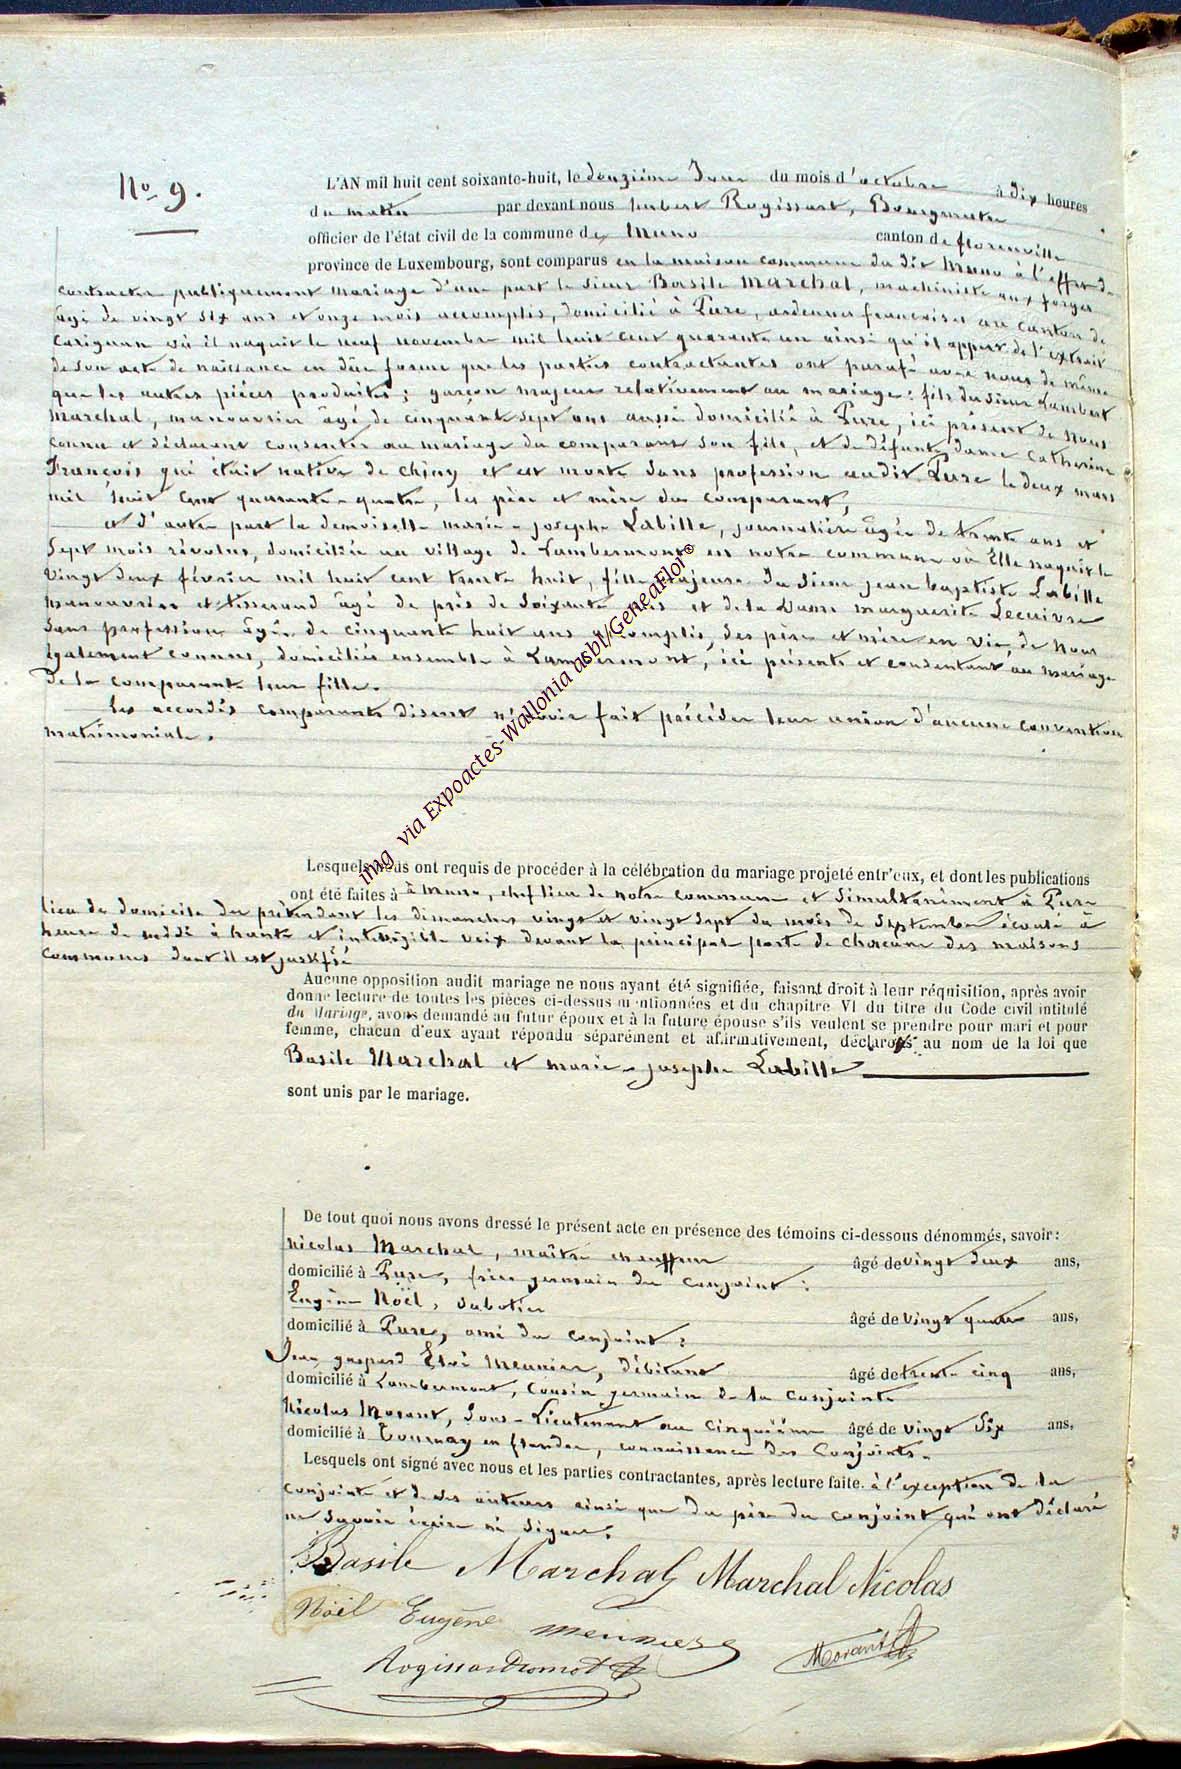 No 9.
L'AN mil huit cent soixante-huit, le deuxième Jour du mois d'octobre à dix heures
du matin par devant nous hubert Rogissart, Bourgmestre
officier de l'état civil de la commune de Muno canton de florenville
province de Luxembourg, sont comparus en la maison commune du dit Muno à l'effet de
contracter publiquement mariage d'une part le sieur Basile Marchal, machiniste aux forges
âgé de vingt six ans et onze mois accomplis, domicilié à Pure, ardennes françaises au canton de
Carignan où il naquit le neuf novembre mil huit cent quarante un ainsi qu'il appert de l'extrait
de son acte de naissance en düe forme que les parties contractantes ont parafé avec nous de même
que les autres pièces produites; garçon majeur relativement au mariage: fils du sieur Lambert
Marchal, manouvrier âgé de cinquante sept ans aussi domicilié à Pure, ici présent de nous
connu et déclarant consentir au mariage du comparant son fils, et de défunte dame Catherine
François qui était native de Chiny et est morte sans profession audit Pure le deux mars
mil huit cent quarante-quatre, les père et mère du comparant,
et d'autre part la demoiselle marie-josephe Labille, journalière âgée de trente ans et
sept mois révolus, domiciliée au village de Lambermont en notre commune où Elle naquit le
vingt deux février mil huit cent trente huit, fille majeure du sieur jean baptiste Labille
manouvrier et tisserand âgé de près de soixante et de la Dame marguerite Lecuivre
sans profession âgée de cinquante huit ans accomplis, des père et mère en vie, de nous
également connus, domiciliés ensemble à Lambermont, ici présents et consentant au mariage
de la comparante leur fille.
Les accordés comparants disent n'avoir fait précéder leur union d'aucune convention
matrimoniale.
img via Expoactes-Wallonia asbl/GeneaFlor©
Lesquels nous ont requis de procéder à la célébration du mariage projeté entr'eux, et dont les publications
ont été faites à à Muno, chef lieu de notre commune et simultanément à Pure
lieu de domicile du prétendant les dimanches vingt et vingt sept du mois de septembre écoulé à
heure de midi à haute et intelligible voix devant la principale porte de chacune des maisons
communes dont il est justifié
Aucune opposition audit mariage ne nous ayant été signifiée, faisant droit à leur réquisition, après avoir
donné lecture de toutes les pièces ci-dessus mentionnées et du chapitre VI du titre du Code civil intitulé
du Mariage, avons demandé au futur époux et à la future épouse s'ils veulent se prendre pour mari et pour
femme, chacun d'eux ayant répondu séparément et affirmativement, déclarons au nom de la loi que
Basile Marchal et marie-josephe Labille
sont unis par le mariage.
De tout quoi nous avons dressé le présent acte en présence des témoins ci-dessous dénommés, savoir:
Nicolas Marchal, maître chauffeur âgé de vingt deux ans,
domicilié à Pure, frère germain du conjoint:
Eugène Noël, sabotier âgé de vingt quatre ans,
domicilié à Pure, ami du conjoint:
Jean gaspard Eloi Meunier, débitant âgé de trente cinq ans,
domicilié à Lambermont, cousin germain de la conjointe
Nicolas Morant, Sous-Lieutenant au cinquième âgé de vingt six ans,
domicilié à Tournay en flandre, connaissance des conjoints.
Lesquels ont signé avec nous et les parties contractantes, après lecture faite. à l'exception de la
conjointe et de ses auteurs ainsi que du père du conjoint qui ont déclaré
ne savoir écrire ni signer.
Basile Marchal Marchal Nicolas
Noël Eugène Meunier
Morant